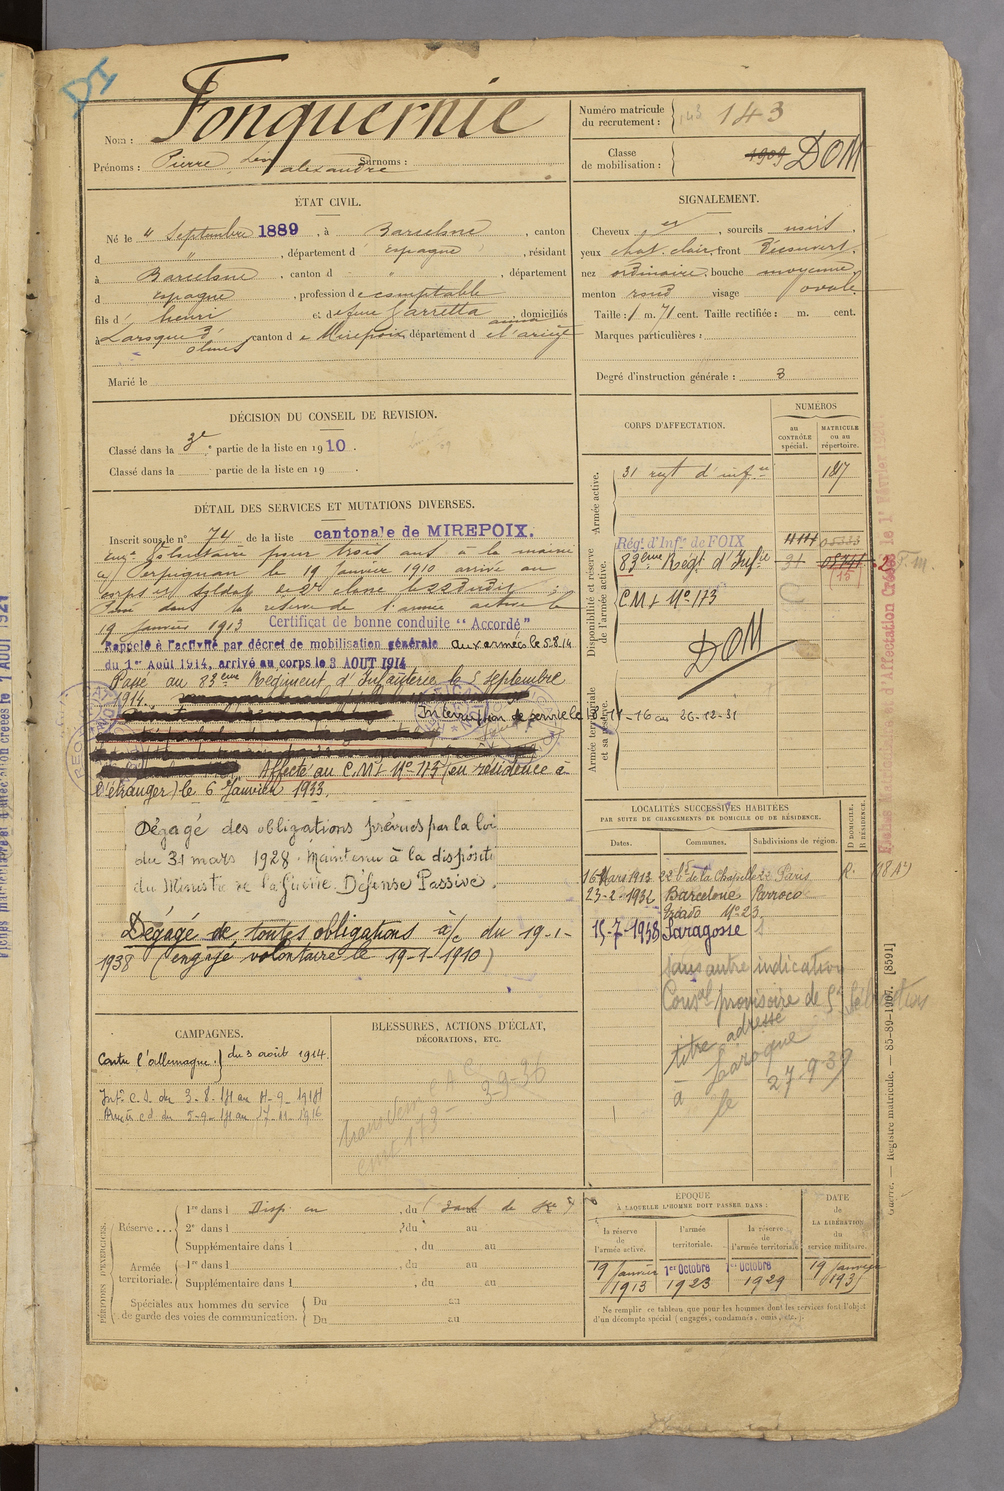 DI
Nom : Fonquernie
Prénoms : Pierre Léon alexandre Surnoms :
Numéro matricule du recrutement : 143
Classe de mobilisation : 1909 DOM
ÉTAT CIVIL.
Né le 4 Septembre 1889, à Barcelone, canton
d " , département d' Espagne, résidant
à Barcelone, canton d " , département
d Espagne, profession de comptable
fils d' henri et de Garretta , domiciliés
à Laroque d'olmes canton de Mirepoix, département de l'ariège
Marié le
SIGNALEMENT.
Cheveux et, sourcils noirs,
yeux chat. clair, front Découvert,
nez ordinaire, bouche moyenne,
menton rond visage ovale
Taille : 1 m. 71 cent. Taille rectifiée : m. cent.
Marques particulières :
Degré d'instruction générale : 3
DÉCISION DU CONSEIL DE REVISION.
Classé dans la 3e partie de la liste en 1910.
Classé dans la partie de la liste en 19 .
DÉTAIL DES SERVICES ET MUTATIONS DIVERSES.
Inscrit sous le n° 74 de la liste cantonale de MIREPOIX.
Engé Volontaire pour trois ans à la mairie
de Perpignan le 19 Janvier 1910 arrivé au
corps et soldat de 2e classe le 22 dudit
Passé dans la réserve de l'armée active le
19 Janvier 1913 Certificat de bonne conduite "Accordé"
Rappelé à l'activité par décret de mobilisation générale aux armées le 5.8.14
du 1er Août 1914, arrivé au corps le 3 AOUT 1914
Passé au 83eme Régiment d'Infanterie le 5 septembre
1914.
Interruption de service le 18-11-16 au 26-12-31
Affecté au C.M.I. N° 173 (en résidence à
l'étranger) le 6 Janvier 1933.
Dégagé des obligations prévues par la loi
du 31 mars 1928. Maintenu à la disposit
du Ministre de la Guerre. Défense Passive.
Dégagé de toutes obligations à/c du 19-1-
1938 (engagé volontaire le 19-1-1910)
CORPS D'AFFECTATION.
NUMÉROS
au CONTRÔLE spécial.
MATRICULE ou au répertoire.
Armée active.
31 regt d'infie 187
Disponibilité et réserve de l'armée active.
Régt d'Infie de FOIX
83eme Régt d'Infie 31
CMI N° 173
DOM
Armée territoriale et sa réserve.
LOCALITÉS SUCCESSIVES HABITÉES
PAR SUITE DE CHANGEMENTS DE DOMICILE OU DE RÉSIDENCE.
Dates. Communes. Subdivisions de région. D DOMICILE. R RÉSIDENCE.
16 Mars 1913 22 Bd de la Chapelle Paris R.
23-2-1932 Barcelone
N° 23.
15-7-1938 Saragosse
sans autre indication
provisoire de
titre adresse
à Laroque
le 27.9.39
CAMPAGNES.
Contre l'allemagne. du 3 août 1914.
Int. C.S. du 3-8-14 au 4-9-1914
Armée C.S. du 5-9-14 au 17-11-1916
BLESSURES, ACTIONS D'ÉCLAT,
DÉCORATIONS, ETC.
3-9-36
cmt 173
PÉRIODES D'EXERCICES.
Réserve ... 1re dans l Disp. en , du
2e dans l , du au
Supplémentaire dans l , du au
Armée territoriale. 1re dans l , du au
Supplémentaire dans l , du au
Spéciales aux hommes du service Du au
de garde des voies de communication. Du au
ÉPOQUE
À LAQUELLE L'HOMME DOIT PASSER DANS :
la réserve de l'armée active.
l'armée territoriale.
la réserve de l'armée territoriale
DATE DE LA LIBÉRATION du service militaire.
19 Janvier 1913
1er Octobre 1923
1er Octobre 1929
19 Janvier 193
Ne remplir ce tableau que pour les hommes dont les services font l'objet
d'un décompte spécial (engagés, condamnés, omis, etc.).
Guerre. — Registre matricule. — 85-89-1907. [8591]